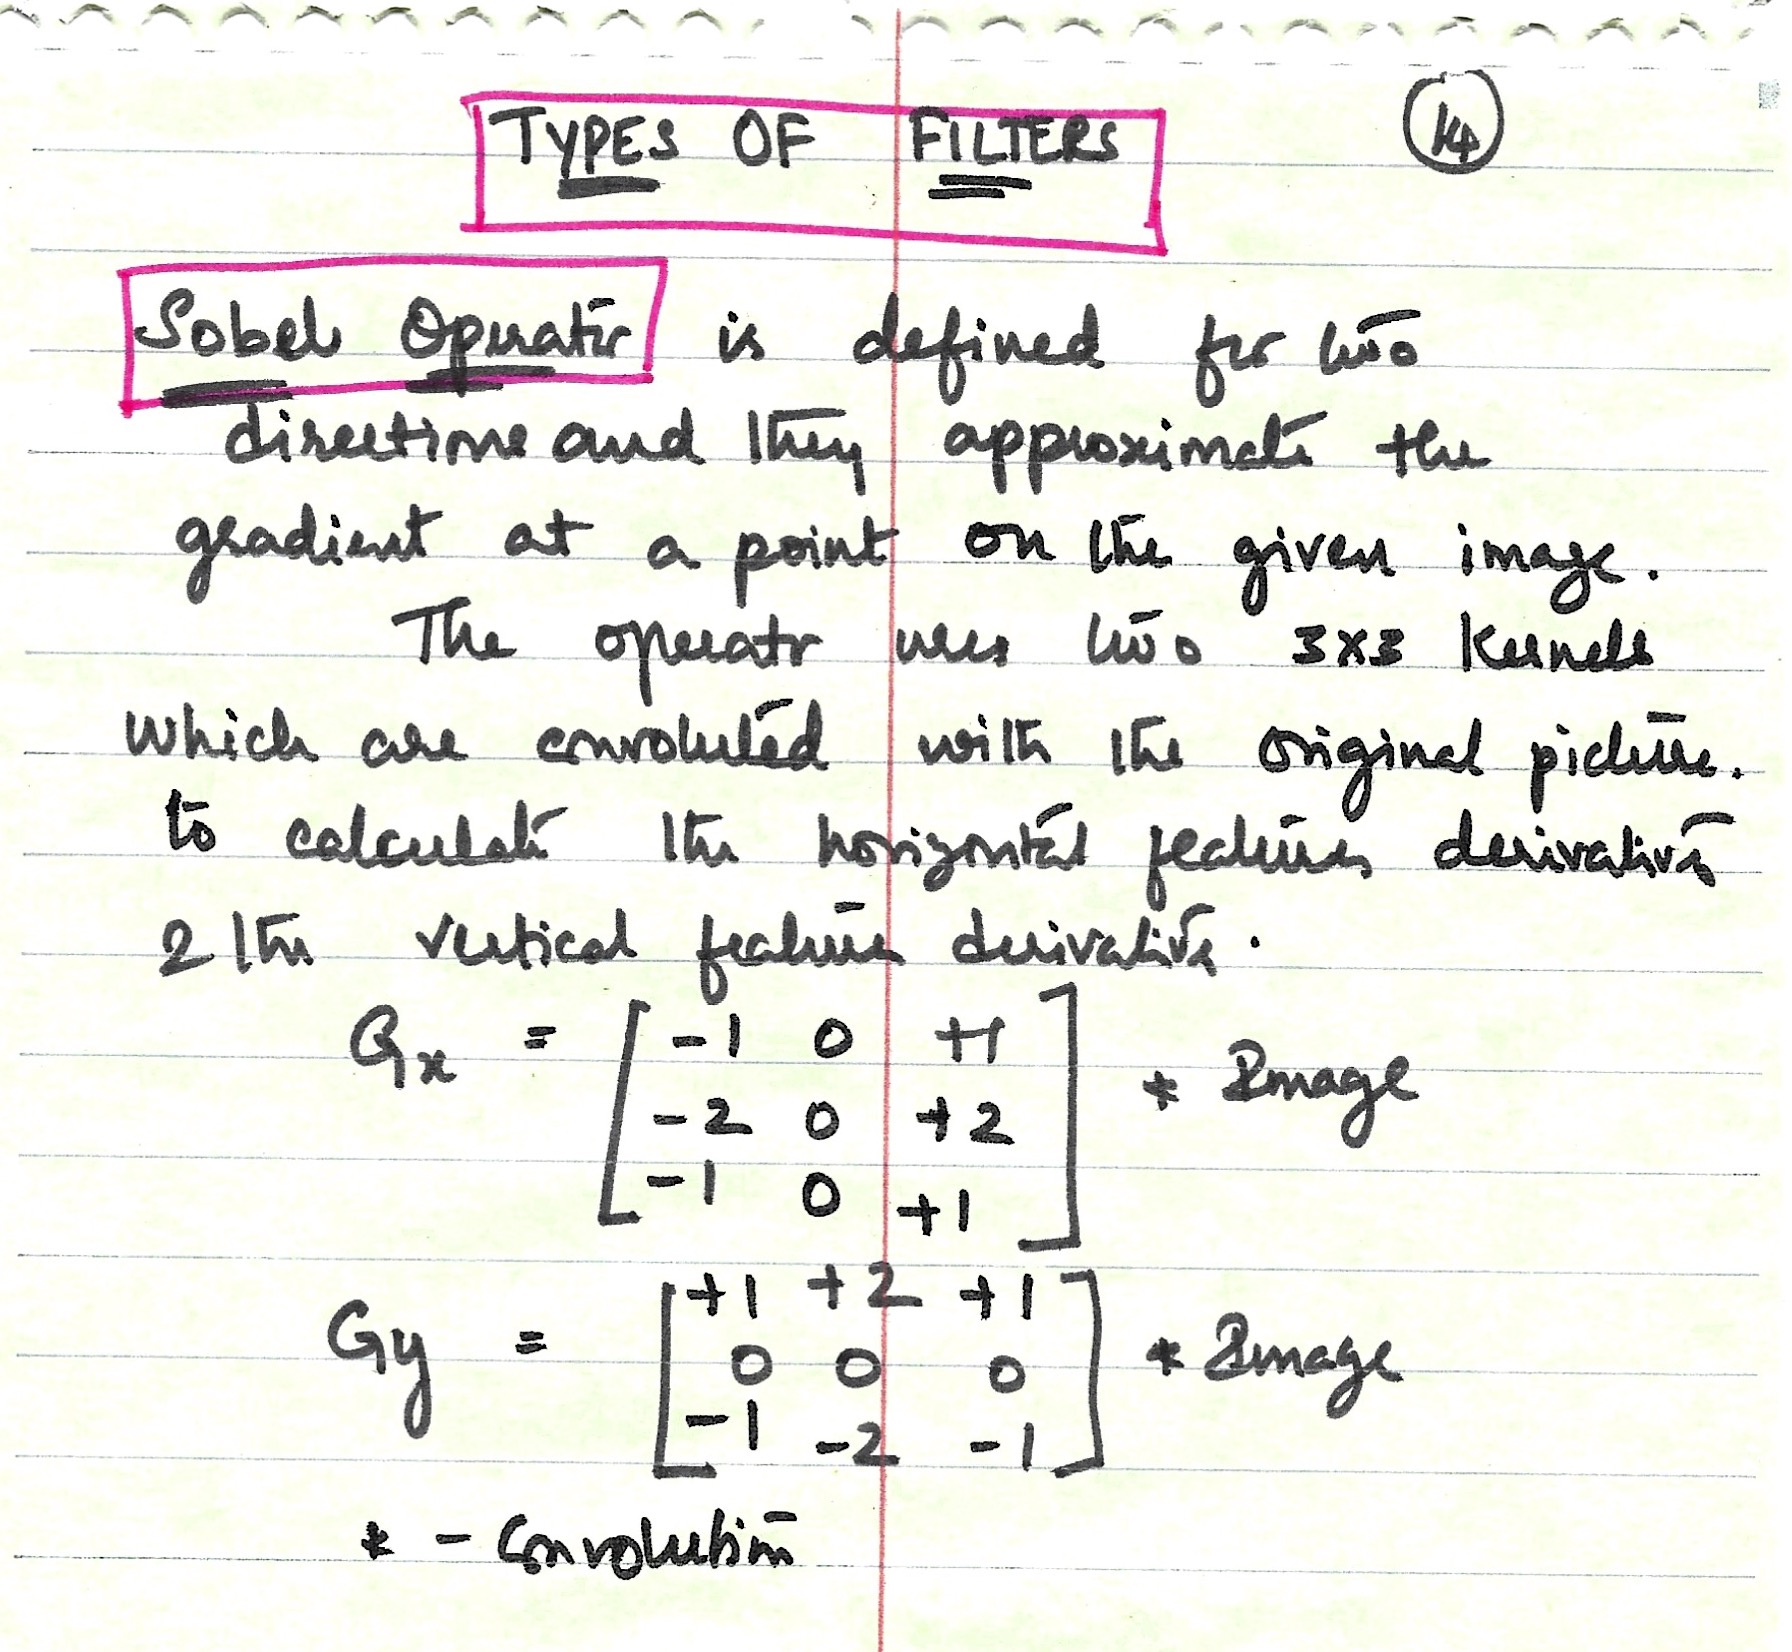 TYPES OF FILTERS
14
Sobel Operator is defined for two
directions and they approximate the
gradient at a point on the given image.
The operator uses two 3x3 Kernels
which are convoluted with the original picture.
to calculate the horizontal features derivative
& the vertical features derivative.
Gx = [ -1 0 +1
-2 0 +2
-1 0 +1 ] * Image
Gy = [ +1 +2 +1
0 0 0
-1 -2 -1 ] * Image
* - Convolution